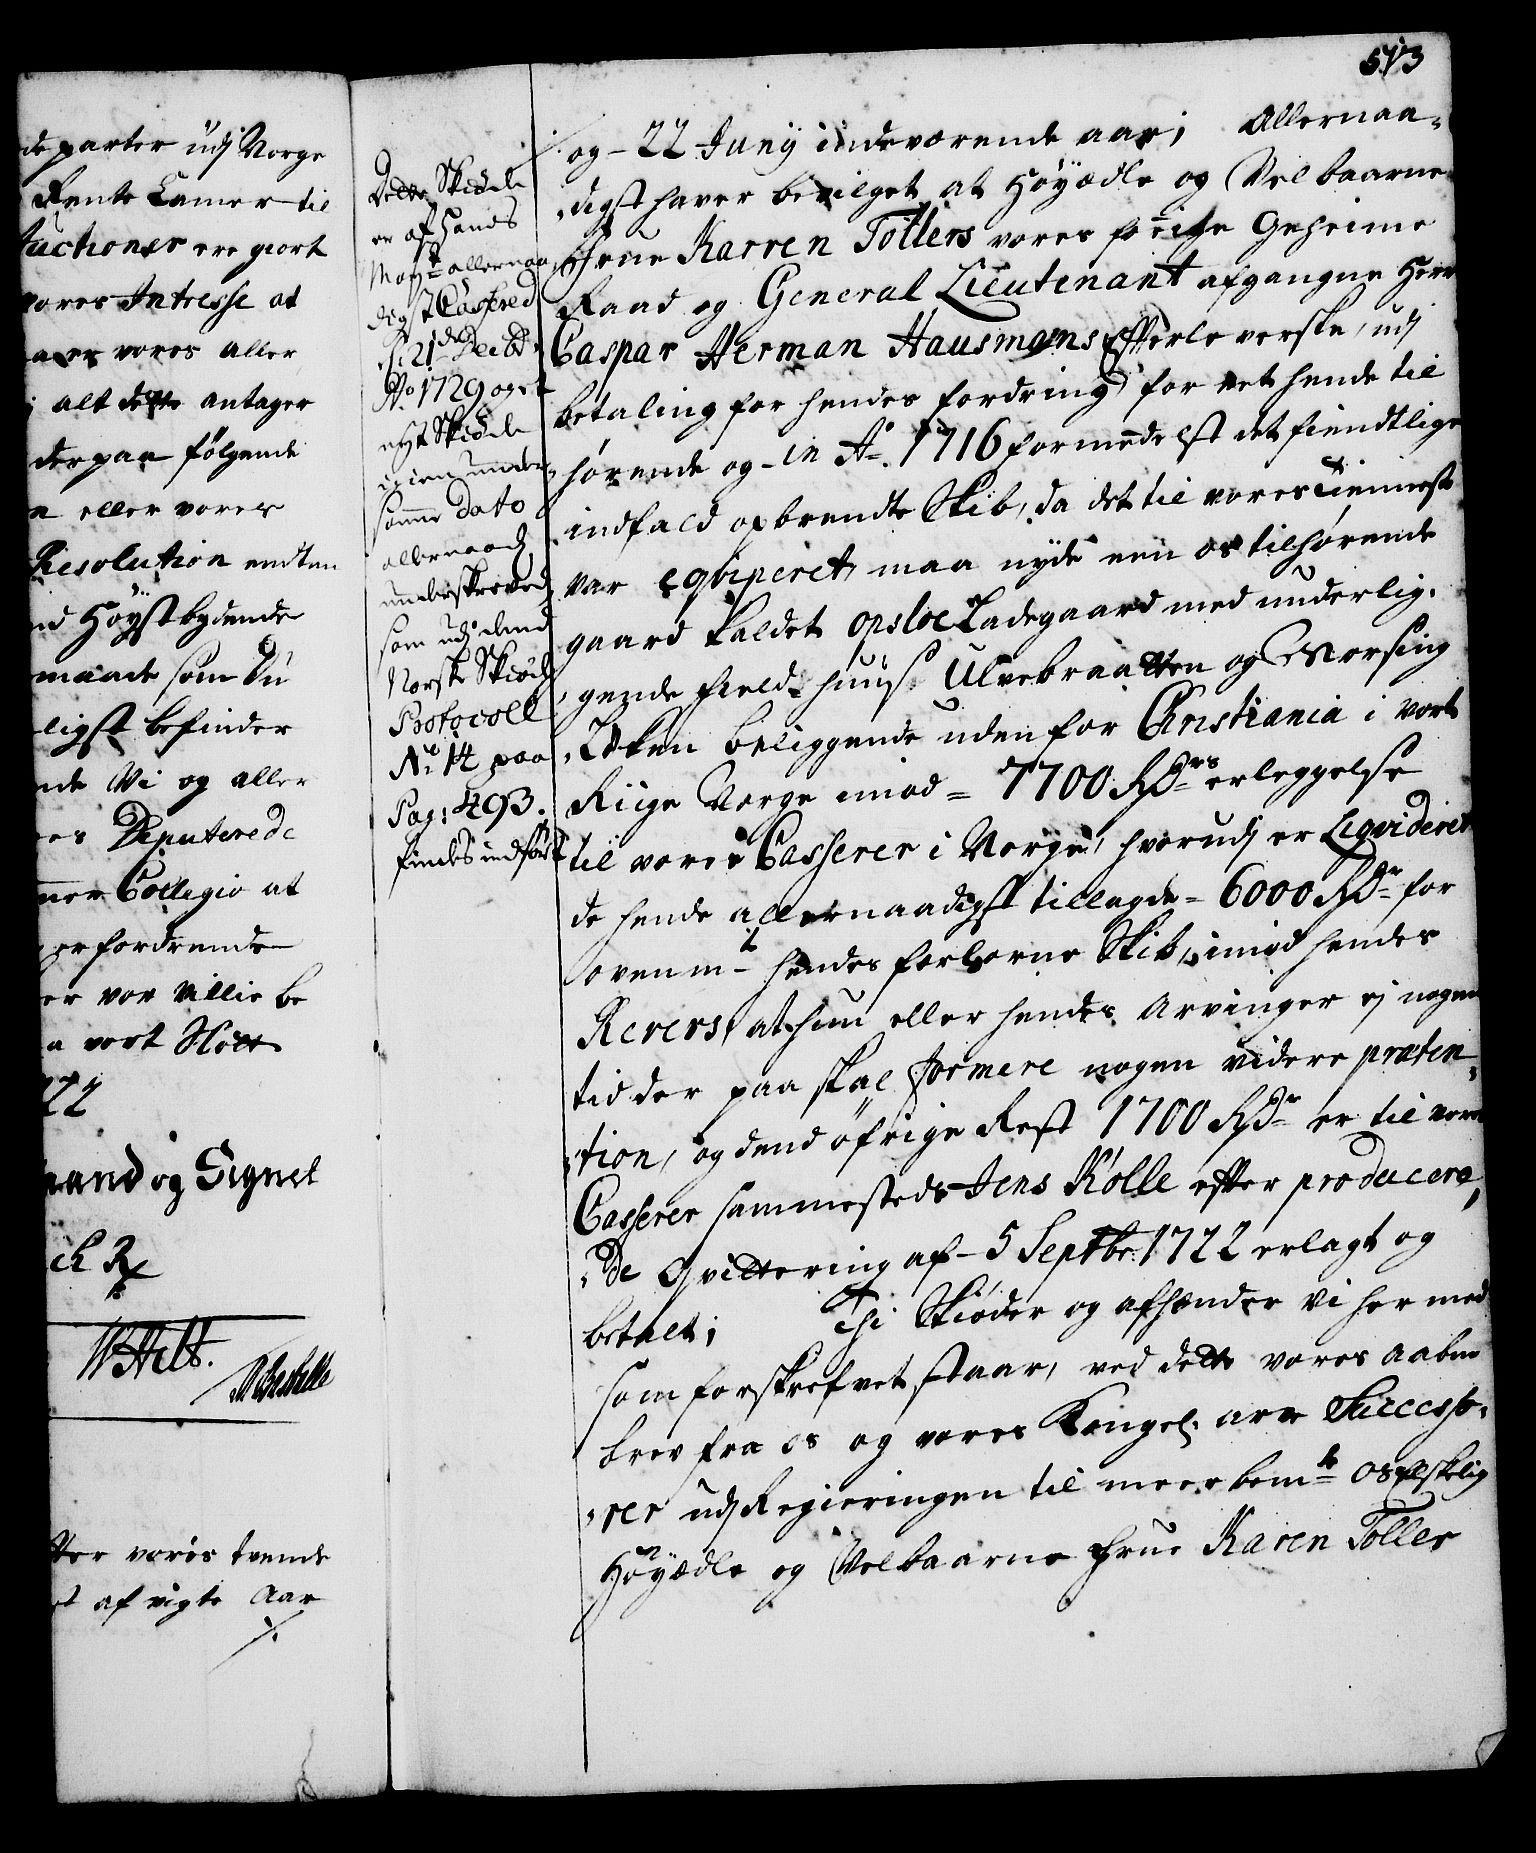 de parter udj Norge
Rente Camer til
Auctioner ere giort
vores Intresse at
vores Aller
alt dette antager
derpaa følgende
eller vores
Resolution endten
Høystbydende
maade som Du
ligst befinder
Vi og aller
Deputerede
Collegio at
erfordrende
vor Villie be
vort Slott
22
haand og Signet
ter vores tvende
af vigte Aar
./.
Dette Skiøde
er af Hands
Mayt allernaa
digst Cassered
d: 21de Decbr
Ao 1729 og et
nyt Skiøde
igien under
samme Dato
allernaadg
underskreved
som udj dend
Norske Skiøde
Protocoll
No 14 paa
Pag: 493.
findes indført
513
og 22 Junÿ indeværende aar; Allernaa-
digst haver bevilget at Høÿædle og Velbaarne
Frue Karren Tollers vores forige Geheime
Raad og General Lieutenant afgangne Herr
Caspar Herman Hausmans Effterleverske, udj
betaling for hendes fordring for et hende til
hørende og in Ao. 1716 formedelst det fiendtlige
indfald opbrendte Skib, da det til vores tienneste
var eqviperet, maa nyde een os tilhørende
gaard kaldet Opsloe Ladegaard med underlig-
gende field huus Ulvebraatten og Morsing
Løken beliggende uden for Christiania i vort
Riige Norge imod = 7700 Rdrs erleggelse
til vores Casserer i Norge, hvorudj er Liqvideret
de hende allernaadigst tillagde = 6000 Rdr for
ovenmt hendes forlorne Skib, imod hendes
Revers, at hun eller hendes Arvinger ej nogen
tid der paa skal formere nogen videre præten-
tion, og dend øfrige Rest 1700 Rdr er til vores
Casserer sammesteds Jens Kolle efter producere,
de Qvittering af 5 Septbr. 1722 erlagt og
betalt; Thi Skiøder og afhænder Vi her med
som forskrefvet staar, ved dette vores aabne
brev fra os og vores Kongel. arve Successo-
rer udj Regieringen til meerbemte os Elskelig
Høÿædle og Velbaarne Frue Karen Toller